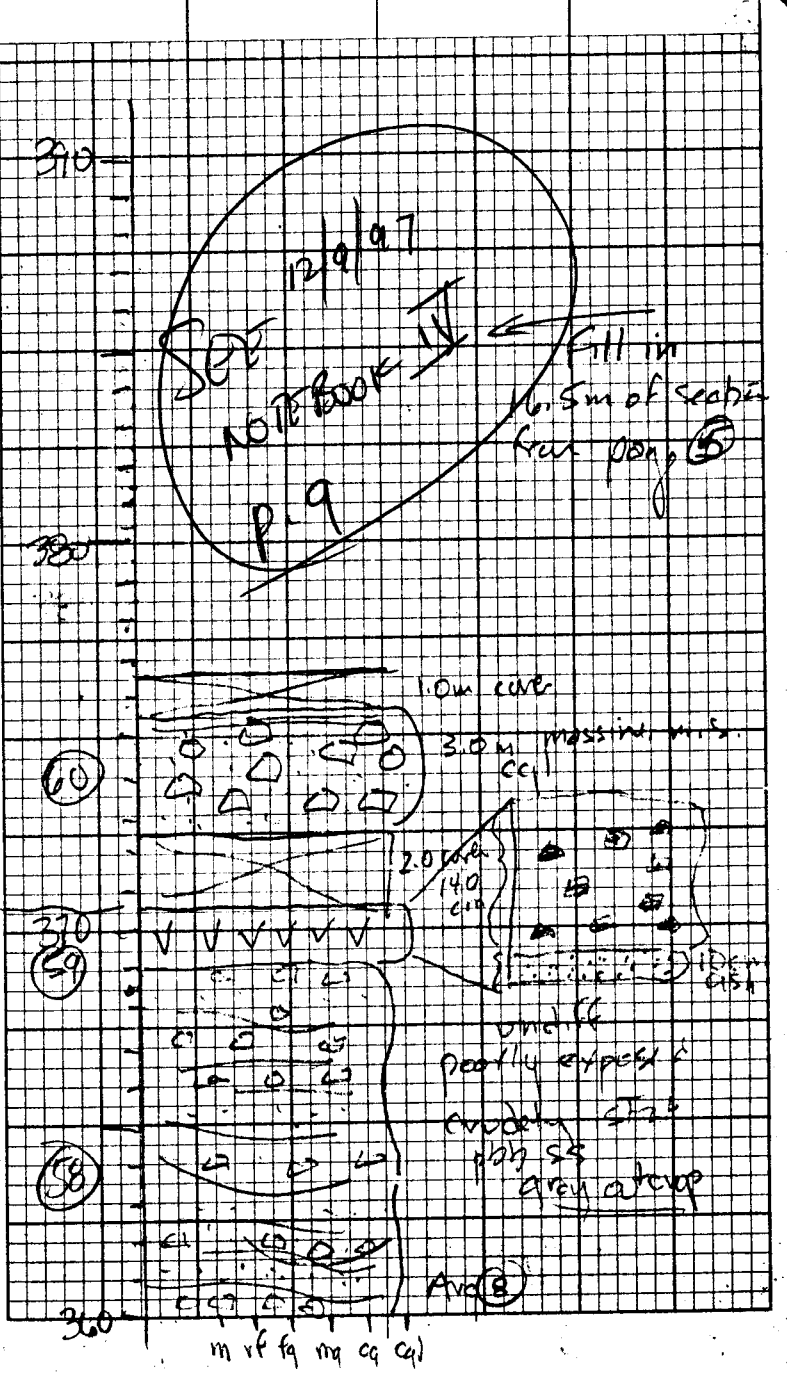 390
12/9/97
SEE
NOTEBOOK IV
p. 9
Fill in
16.5m of section
from page 5
380
1.0m cover
3.0m massive m.s.
cgl
60
2.0 cover
14.0
cm
370
59
10cm
undiff
poorly exposed
crudely strat
pbb ss
grey outcrop
58
Avg 8
360
m vf fg mg cg cgl